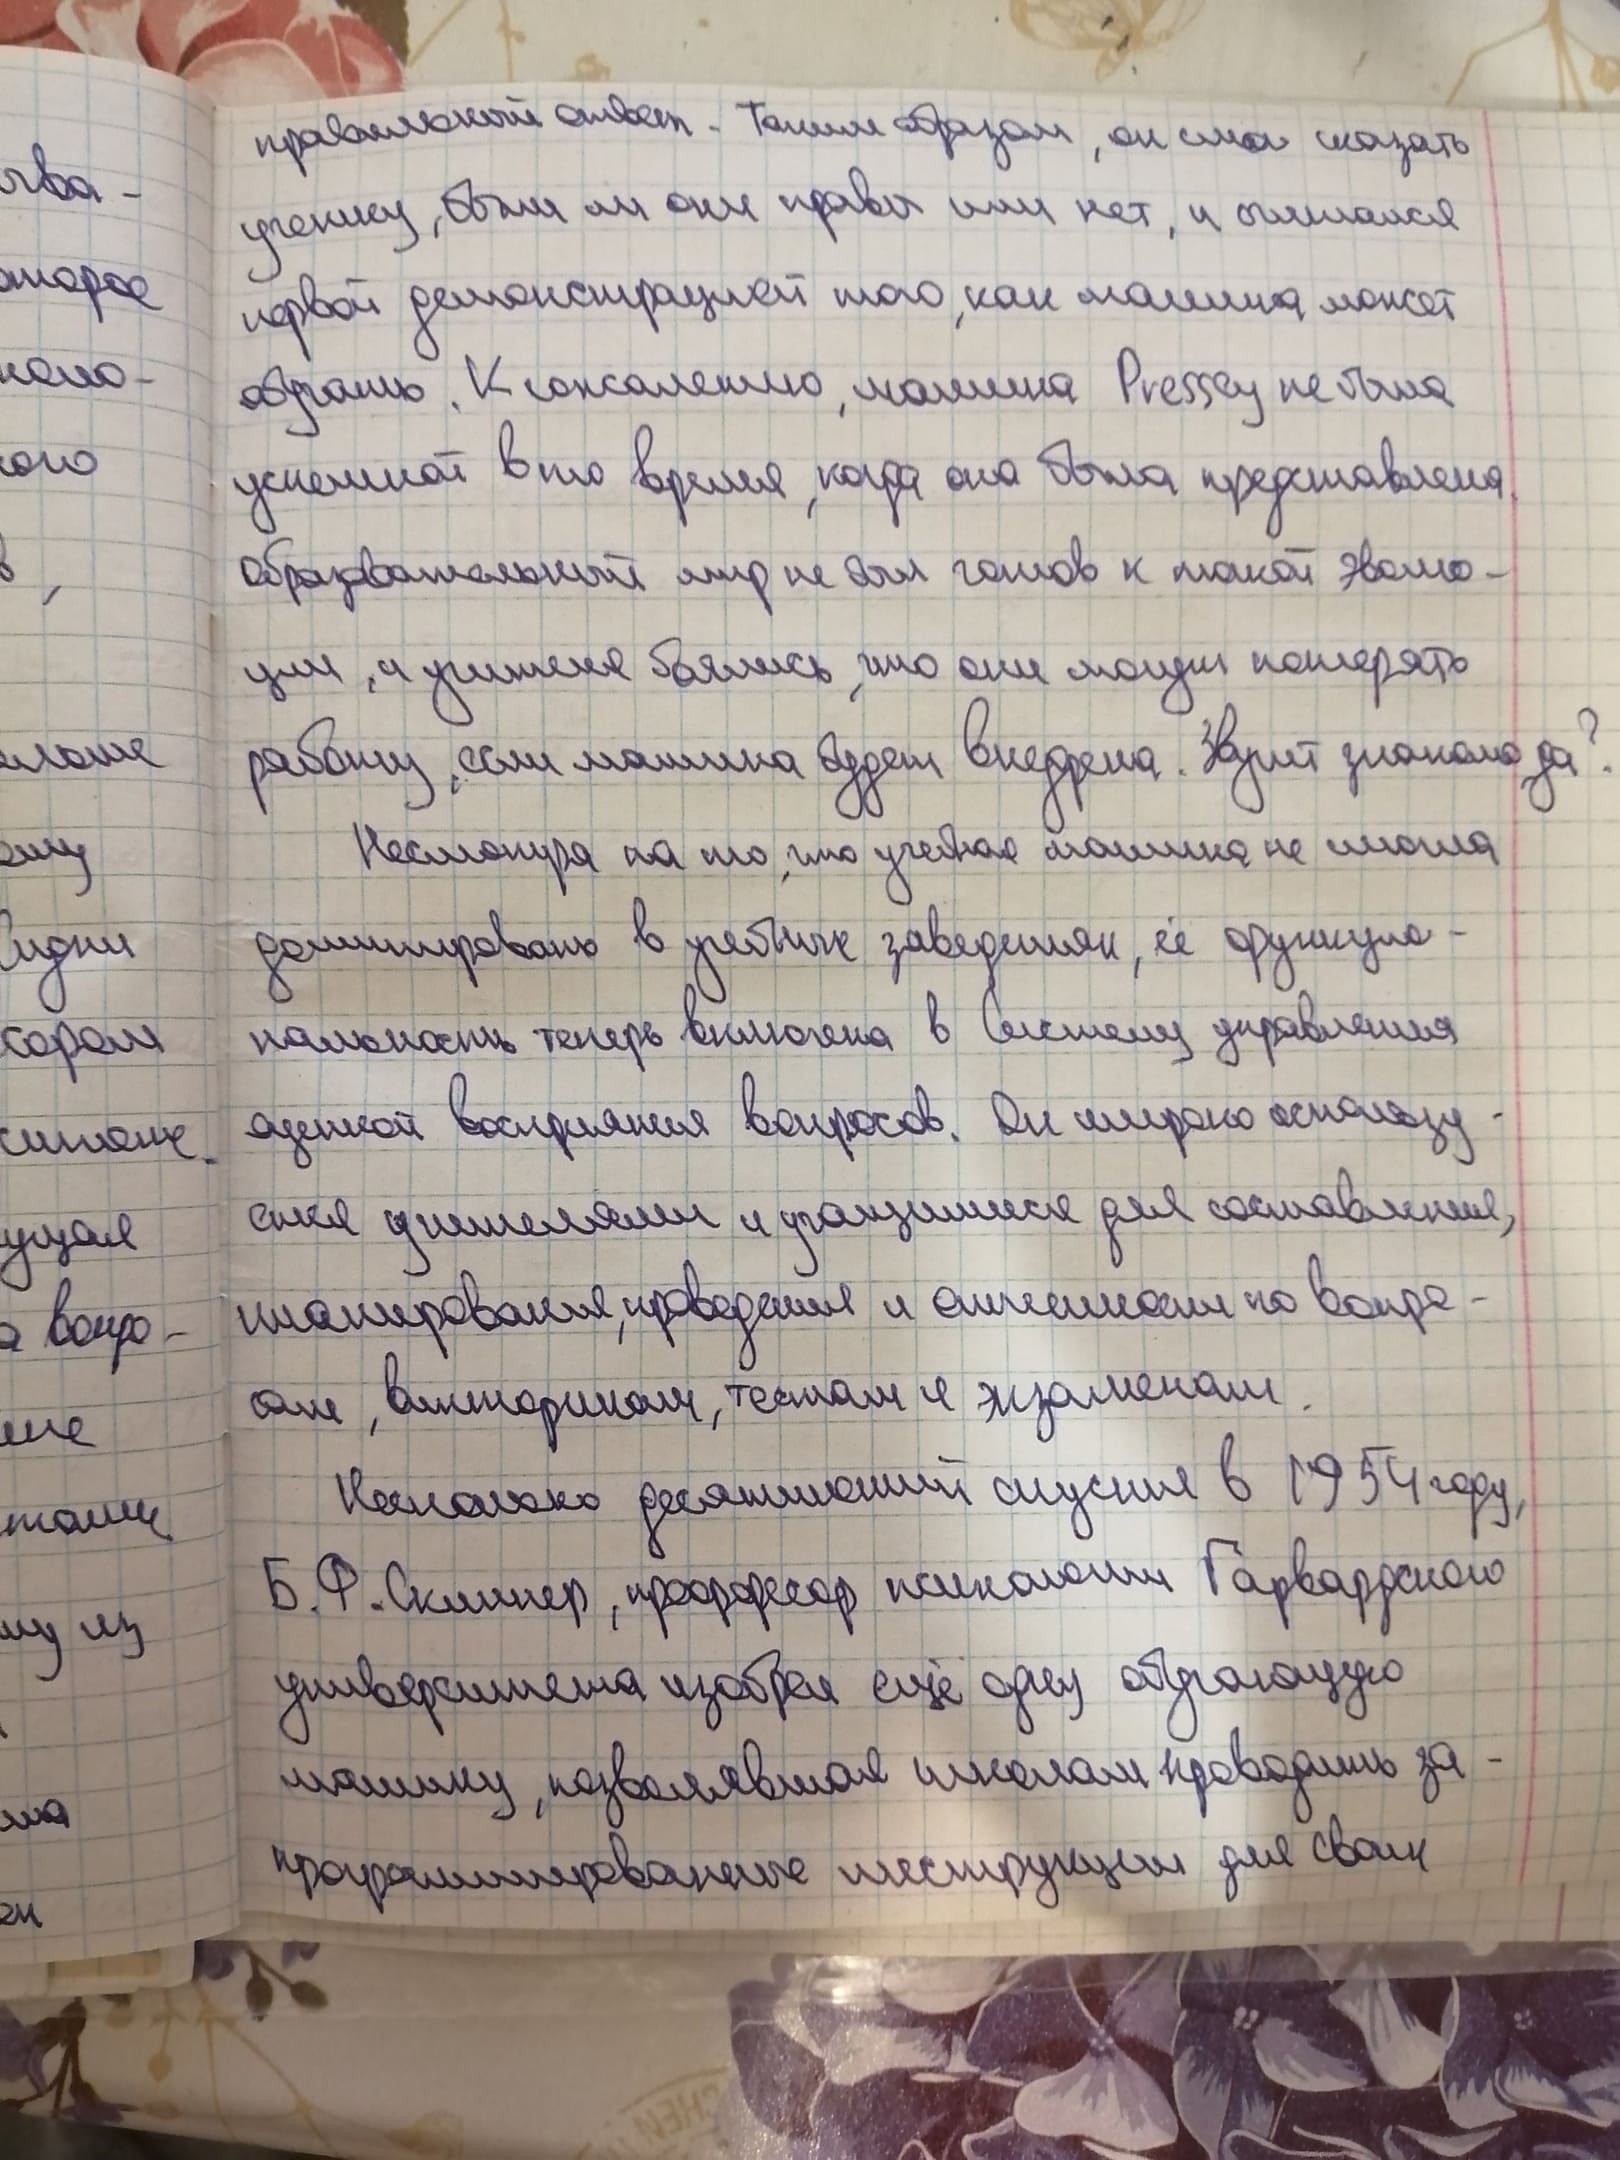 правильный ответ. Таким образом, он смог сказать
ученику, были ли они правы или нет, и считался
первой демонстрацией того, как машина может
обучать. К сожалению, машина Pressey не была
успешной в то время, когда она была представлена.
Образовательный мир не был готов к такой эволю-
ции, и учителя боялись, что они могут потерять
работу, если машина будет внедрена. Звучит знакомо, да?
Несмотря на то, что учебная машина не смогла
доминировать в учебных заведениях, её функцио-
нальность теперь включена в Систему управления
оценкой восприятия вопросов. Он широко использу-
ется учителями и учащимися для составления,
планирования, проведения и отчетности по вопро-
сам, викторинам, тестам и экзаменам.
Несколько десятилетий спустя в 1954 году,
Б.Ф. Скиннер, профессор психологии Гарвардского
университета изобрел ещё одну обучающую
машину, позволявшая школам проводить за-
программированные инструкции для своих